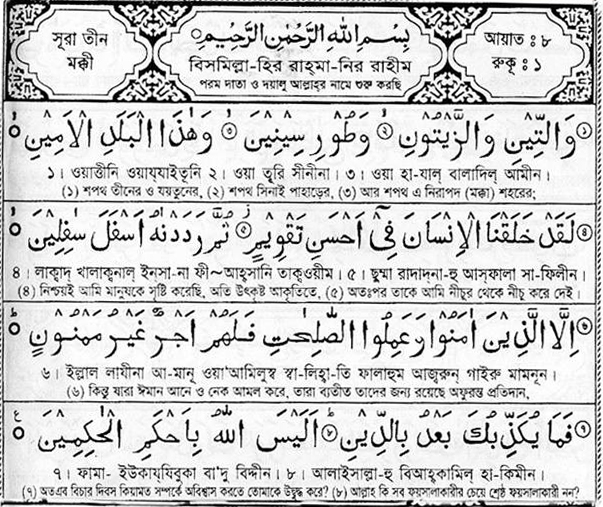 সূরা তীন
মক্কী
بِسْمِ اللهِ الرَّحْمٰنِ الرَّحِيْمِ
বিসমিল্লা-হির রাহ্‌মা-নির রাহীম
পরম দাতা ও দয়ালু আল্লাহ্‌র নামে শুরু করছি
আয়াত : ৮
রুকূ : ১
وَالتِّيْنِ وَالزَّيْتُوْنِ ۙ وَطُوْرِ سِيْنِيْنَ ۙ وَهٰذَا الْبَلَدِ الْاَمِيْنِ ۙ
১। ওয়াত্তীনি ওয়ায্‌যাইতূনি ২। ওয়া তূরি সীনীনা। ৩। ওয়া হা-যাল্ বালাদিল্ আমীন।
(১) শপথ তীনের ও যয়তুনের, (২) শপথ সিনাই পাহাড়ের, (৩) আর শপথ এ নিরাপদ (মক্কা) শহরের;
لَقَدْ خَلَقْنَا الْاِنْسَانَ فِيْٓ اَحْسَنِ تَقْوِيْمٍ ۙ ثُمَّ رَدَدْنٰهُ اَسْفَلَ سٰفِلِيْنَ ۙ
৪। লাক্বাদ্ খালাক্বনাল্ ইন্‌সা-না ফী~আহ্‌সানি তাক্বওয়ীম। ৫। ছুম্মা রাদাদ্‌না-হু আস্‌ফালা সা-ফিলীন।
(৪) নিশ্চয়ই আমি মানুষকে সৃষ্টি করেছি, অতি উৎকৃষ্ট আকৃতিতে, (৫) অতঃপর তাকে আমি নীচুর থেকে নীচু করে দেই।
اِلَّا الَّذِيْنَ اٰمَنُوْا وَعَمِلُوا الصّٰلِحٰتِ فَلَهُمْ اَجْرٌ غَيْرُ مَمْنُوْنٍ ؕ
৬। ইল্লাল লাযীনা আ-মানূ ওয়া'আমিলুস্ব স্বা-লিহ্বা-তি ফালাহুম আজ্বরুন্ গাইরু মামনূন।
(৬) কিন্তু যারা ঈমান আনে ও নেক আমল করে, তারা ব্যতীত তাদের জন্য রয়েছে অফুরন্ত প্রতিদান,
فَمَا يُكَذِّبُكَ بَعْدُ بِالدِّيْنِ ؕ اَلَيْسَ اللهُ بِاَحْكَمِ الْحٰكِمِيْنَ
৭। ফামা- ইউকায্‌যিবুকা বা'দু বিদ্দীন। ৮। আলাইসাল্লা-হু বিআহ্‌কামিল্ হা-কিমীন।
(৭) অতএব বিচার দিবস কিয়ামত সম্পর্কে অবিশ্বাস করতে তোমাকে উদ্বুদ্ধ করে? (৮) আল্লাহ কি সব ফয়সালাকারীর চেয়ে শ্রেষ্ঠ ফয়সালাকারী নন?